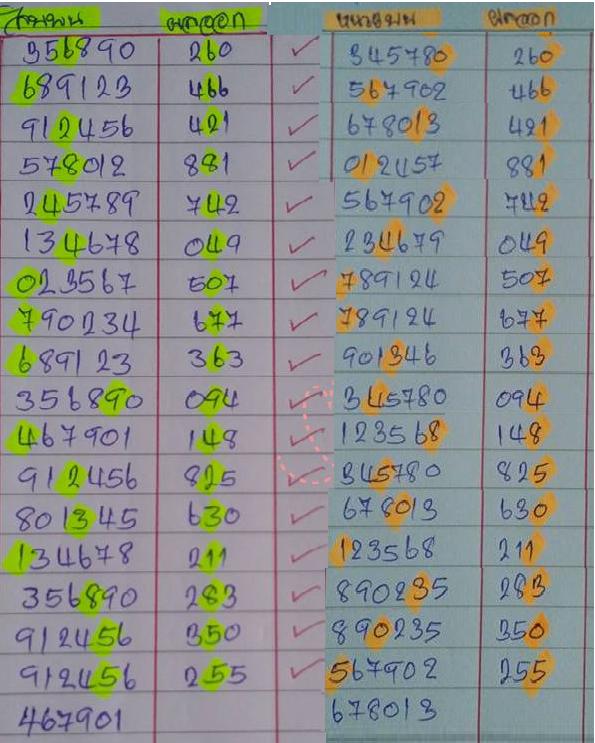 สิบบน ผลออก หน่วยบน ผลออก
356890 260 ✓ 345780 260
689123 466 ✓ 567902 466
912456 421 ✓ 678013 421
578012 881 ✓ 012457 881
245789 742 ✓ 567902 742
134678 049 ✓ 234679 049
023567 507 ✓ 789124 507
790234 677 ✓ 789124 677
689123 363 ✓ 901346 363
356890 094 ✓ 345780 094
467901 148 ✓ 123568 148
912456 825 ✓ 345780 825
801345 630 ✓ 678013 630
134678 211 ✓ 123568 211
356890 283 ✓ 890235 283
912456 350 ✓ 890235 350
912456 255 ✓ 567902 255
467901 678013